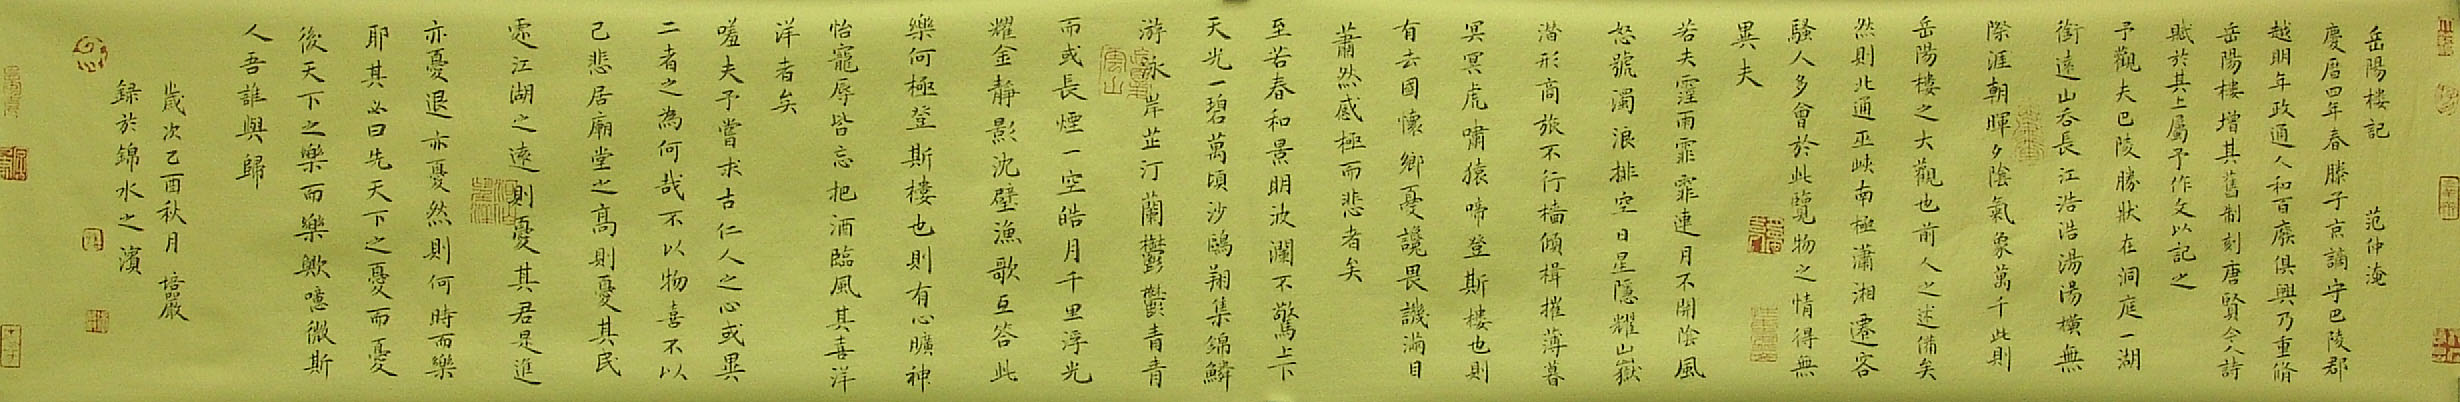 岳陽樓記 范仲淹
慶曆四年春滕子京謫守巴陵郡
越明年政通人和百廢俱興乃重脩
岳陽樓增其舊制刻唐賢今人詩
賦於其上屬予作文以記之
予觀夫巴陵勝狀在洞庭一湖
銜遠山吞長江浩浩湯湯橫無
際涯朝暉夕陰氣象萬千此則
岳陽樓之大觀也前人之述備矣
然則北通巫峽南極瀟湘遷客
騷人多會於此覽物之情得無
異夫
若夫霪雨霏霏連月不開陰風
怒號濁浪排空日星隱耀山嶽
潛形商旅不行檣傾楫摧薄暮
冥冥虎嘯猿啼登斯樓也則
有去國懷鄉憂讒畏譏滿目
蕭然感極而悲者矣
至若春和景明波瀾不驚上下
天光一碧萬頃沙鷗翔集錦鱗
游泳岸芷汀蘭鬱鬱青青
而或長煙一空皓月千里浮光
耀金靜影沈璧漁歌互答此
樂何極登斯樓也則有心曠神
怡寵辱皆忘把酒臨風其喜洋
洋者矣
嗟夫予嘗求古仁人之心或異
二者之為何哉不以物喜不以
己悲居廟堂之高則憂其民
處江湖之遠則憂其君是進
亦憂退亦憂然則何時而樂
耶其必曰先天下之憂而憂
後天下之樂而樂歟噫微斯
人吾誰與歸
歲次乙酉秋月 培嚴
録於錦水之濱